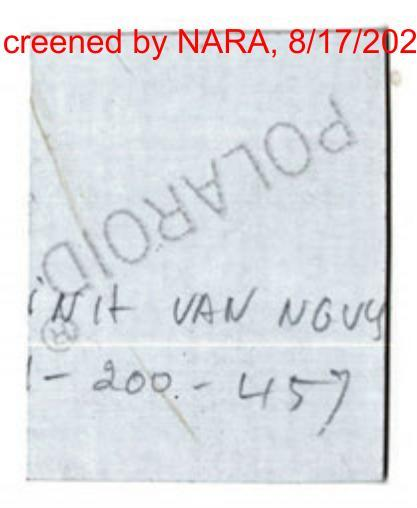 creened by NARA, 8/17/202
POLAROID®
INH VAN NGUY
1-200-457